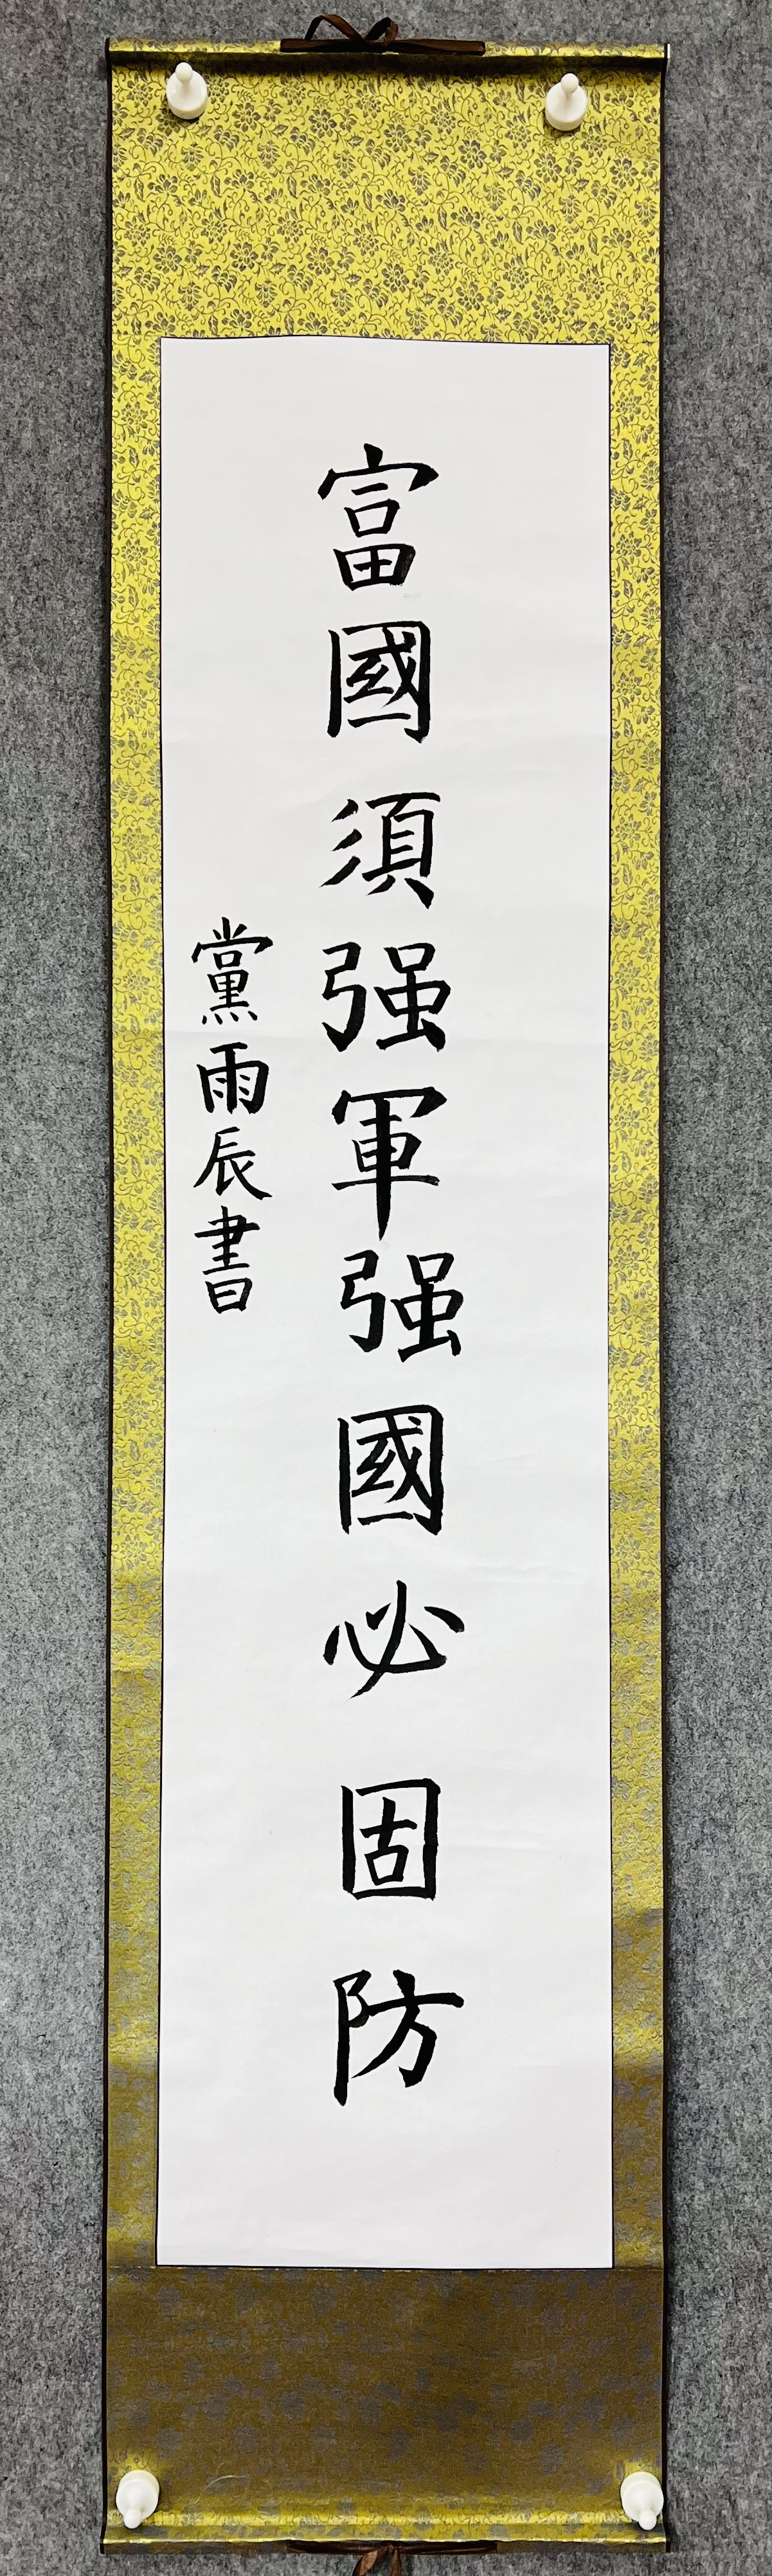 富國須强軍强國必固防
黨雨辰書